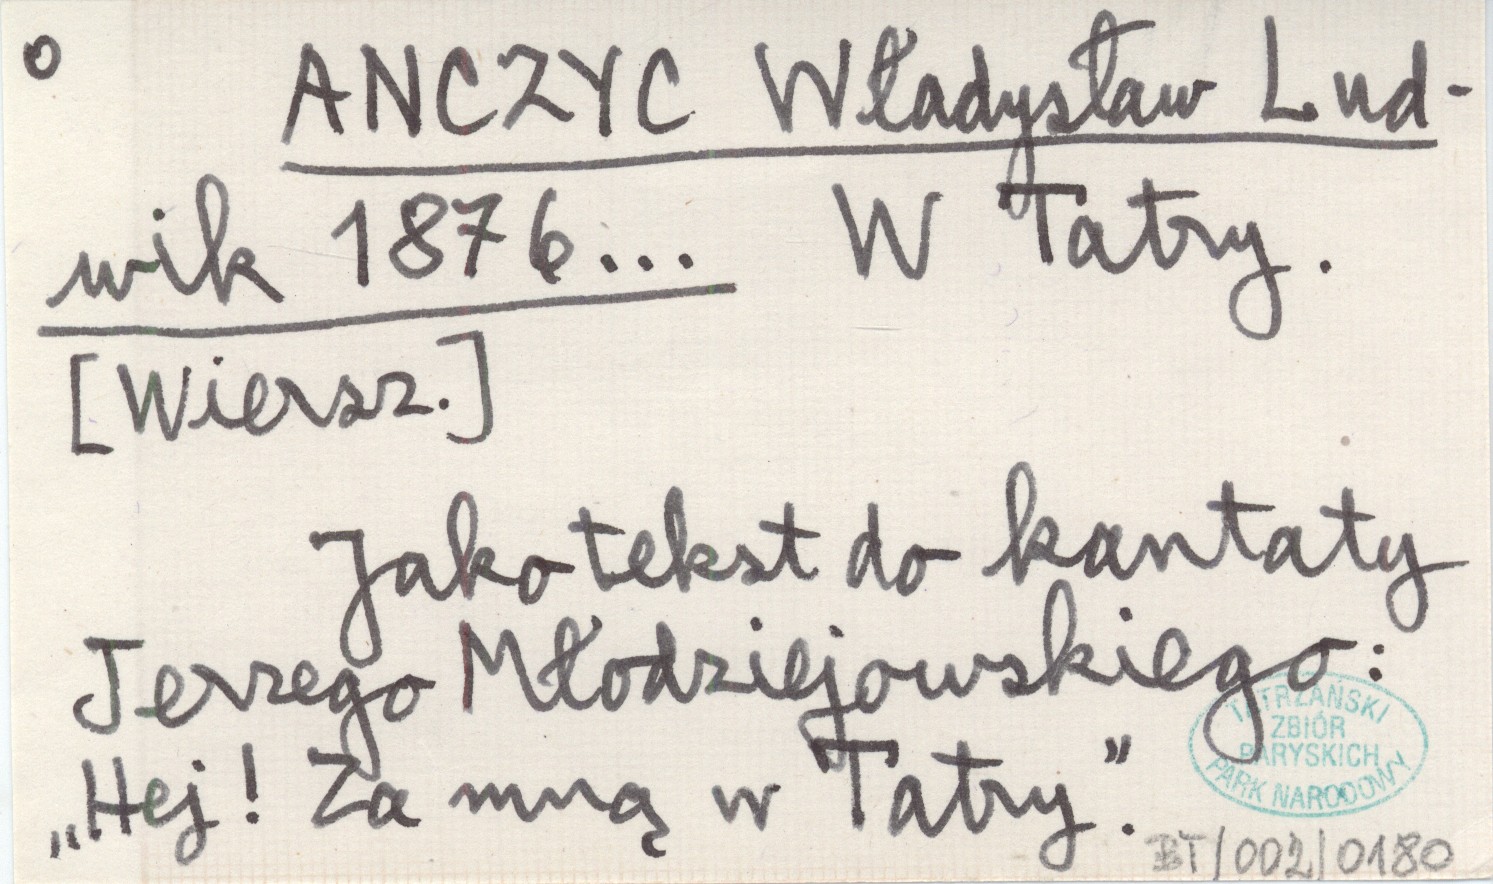 o ANCZYC Władysław Lud-
wik 1876... W Tatry.
[Wiersz.]
Jako tekst do kantaty
Jerzego Młodziejowskiego:
„Hej! Za mną w Tatry".
TATRZAŃSKI
ZBIÓR
PARYSKICH
PARK NARODOWY
BT/002/0180